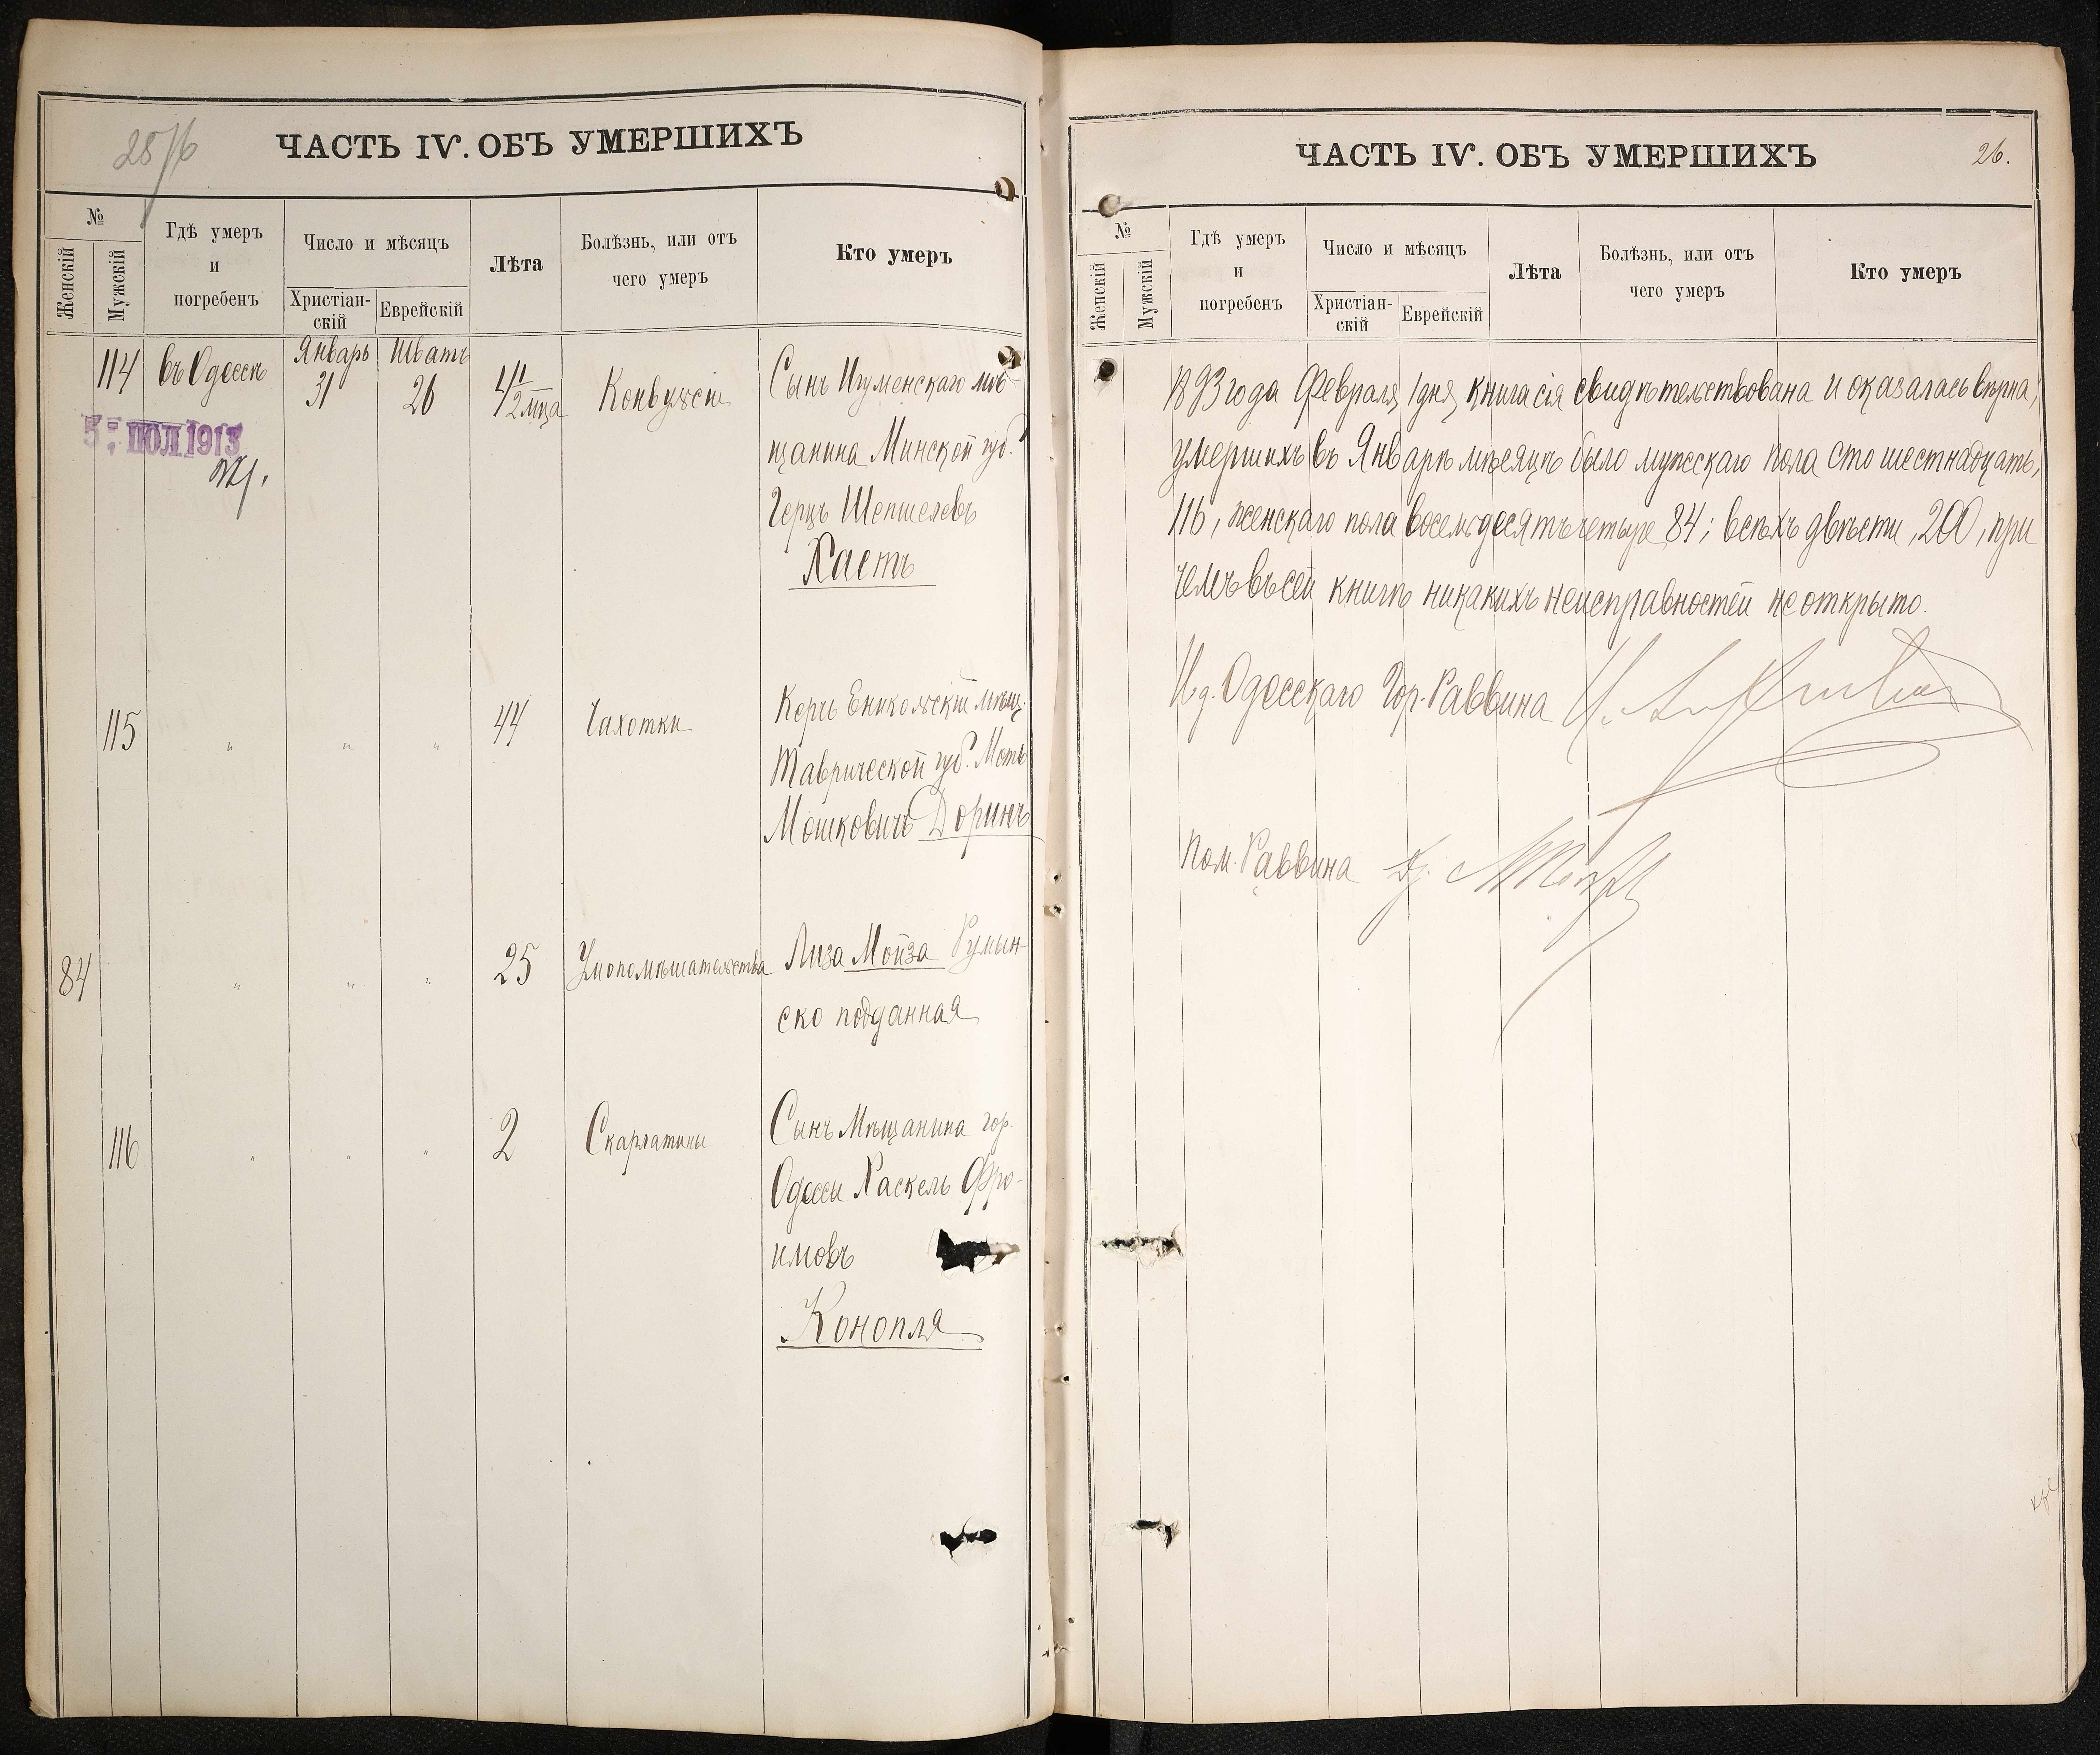 25/6
ЧАСТЬ IV. ОБЪ УМЕРШИХЪ
№
Женскій
Мужскій
Гдѣ умеръ
и
погребенъ
Число и мѣсяцъ
Христіан-
скій
Еврейскій
Лѣта
Болѣзнь, или отъ
чего умеръ
Кто умеръ
114 въ Одессѣ Январь 31 Шватъ 26 4 1/2 мца Конвульсіи Сынъ Игуменскаго мѣ-
щанина Минской губ.
Герцъ Шепшелевъ
Хастъ
5 ІЮЛ 1913
115 " " " 44 Чахотки Керчь Еникольскій мѣщ.
Таврической губ. Моть
Мошковичъ Доринъ
84 " " " 25 Умопомѣшательства Лиза Мойза Румын-
ско подданная
116 " " " 2 Скарлатины Сынъ Мѣщанина гор.
Одессы Хаскель Фро-
имовъ
Конопля
ЧАСТЬ IV. ОБЪ УМЕРШИХЪ
26.
№
Женскій
Мужскій
Гдѣ умеръ
и
погребенъ
Число и мѣсяцъ
Христіан-
скій
Еврейскій
Лѣта
Болѣзнь, или отъ
чего умеръ
Кто умеръ
1893 года Февраля 1 дня, книга сія свидѣтельствована и оказалась вѣрна,
умершихъ въ Январѣ мѣсяцѣ было мужскаго пола сто шестнадцать,
116, женскаго пола восемьдесятъ четыре 84; всѣхъ двѣсти, 200, при
чемъ въ сей книгѣ никакихъ неисправностей не открыто.
И.д. Одесскаго Гор. Раввина
Пом. Раввина